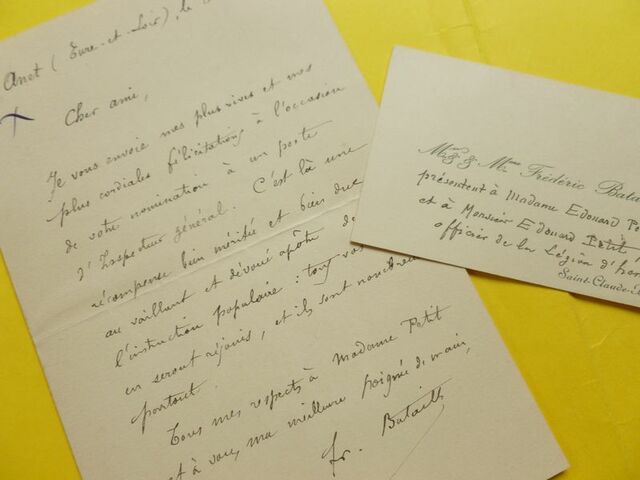 Anet (Eure-et-Loir), le
Cher ami,
Je vous envoie mes plus vives et mes
plus cordiales félicitations à l'occasion
de votre nomination à un poste
d'Inspecteur général. C'est là une
récompense bien méritée et bien due
au vaillant et dévoué apôtre de
l'instruction populaire : tous vos
en seront réjouis, et ils sont nombreux
partout.
Tous mes respects à Madame Petit
et à vous, ma meilleure poignée de main,
Fr. Bataille
& Mme Frédéric Bata
présentent à Madame Edouard Pe
et à Monsieur Edouard Petit
officier de la Légion d'hon
Saint-Claude